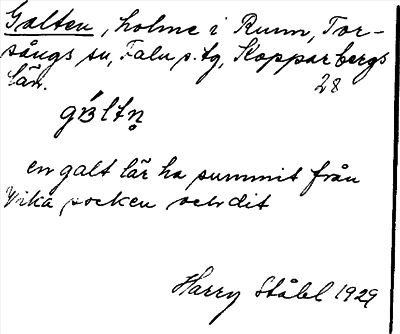 Galten, holme i Runn, Tor-
sångs sn, Falu s.tg, Kopparbergs
län. 28
en galt lär ha summit från
Vika socken och dit
Harry Ståhl 1929